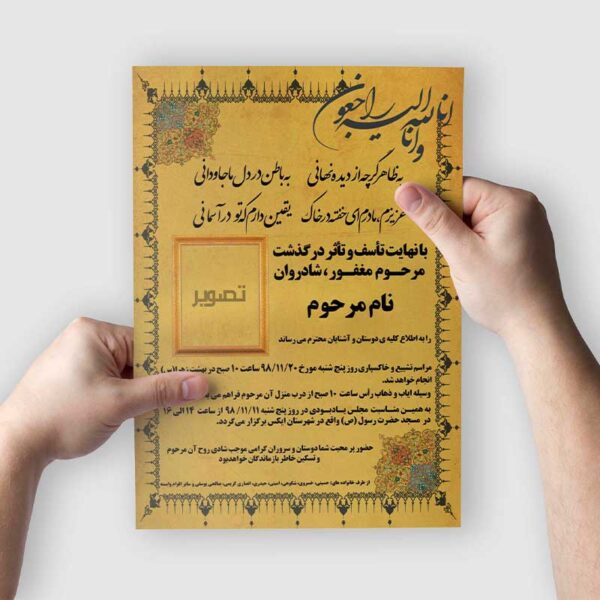 انا لله و انا الیه راجعون
به ظاهر گرچه از دیده نهانی به باطن در دل ما جاودانی
عزیزم، مادرم ای خفته در خاک یقین دارم که تو در آسمانی
با نهایت تأسف و تأثر درگذشت
مرحوم مغفور، شادروان
نام مرحوم
تصویر
را به اطلاع کلیه ی دوستان و آشنایان محترم می رساند
مراسم تشییع و خاکسپاری روز پنج شنبه مورخ ۹۸/۱۱/۲۰ ساعت ۱۰ صبح در بهشت
انجام خواهد شد.
وسیله ایاب و ذهاب رأس ساعت ۱۰ صبح از درب منزل آن مرحوم فراهم می
به همین مناسبت مجلس یادبودی در روز پنج شنبه ۹۸/۱۱/۱۱ از ساعت ۱۴ الی ۱۶
در مسجد حضرت رسول (ص) واقع در شهرستان ایکس برگزار می گردد.
حضور پر محبت شما دوستان و سروران گرامی موجب شادی روح آن مرحوم
و تسکین خاطر بازماندگان خواهدبود
از طرف خانواده های: حسینی، خسروی، شکوهی، امینی، حیدری، انصاری کریمی، صالحی یوسفی و سایر اقوام وابسته